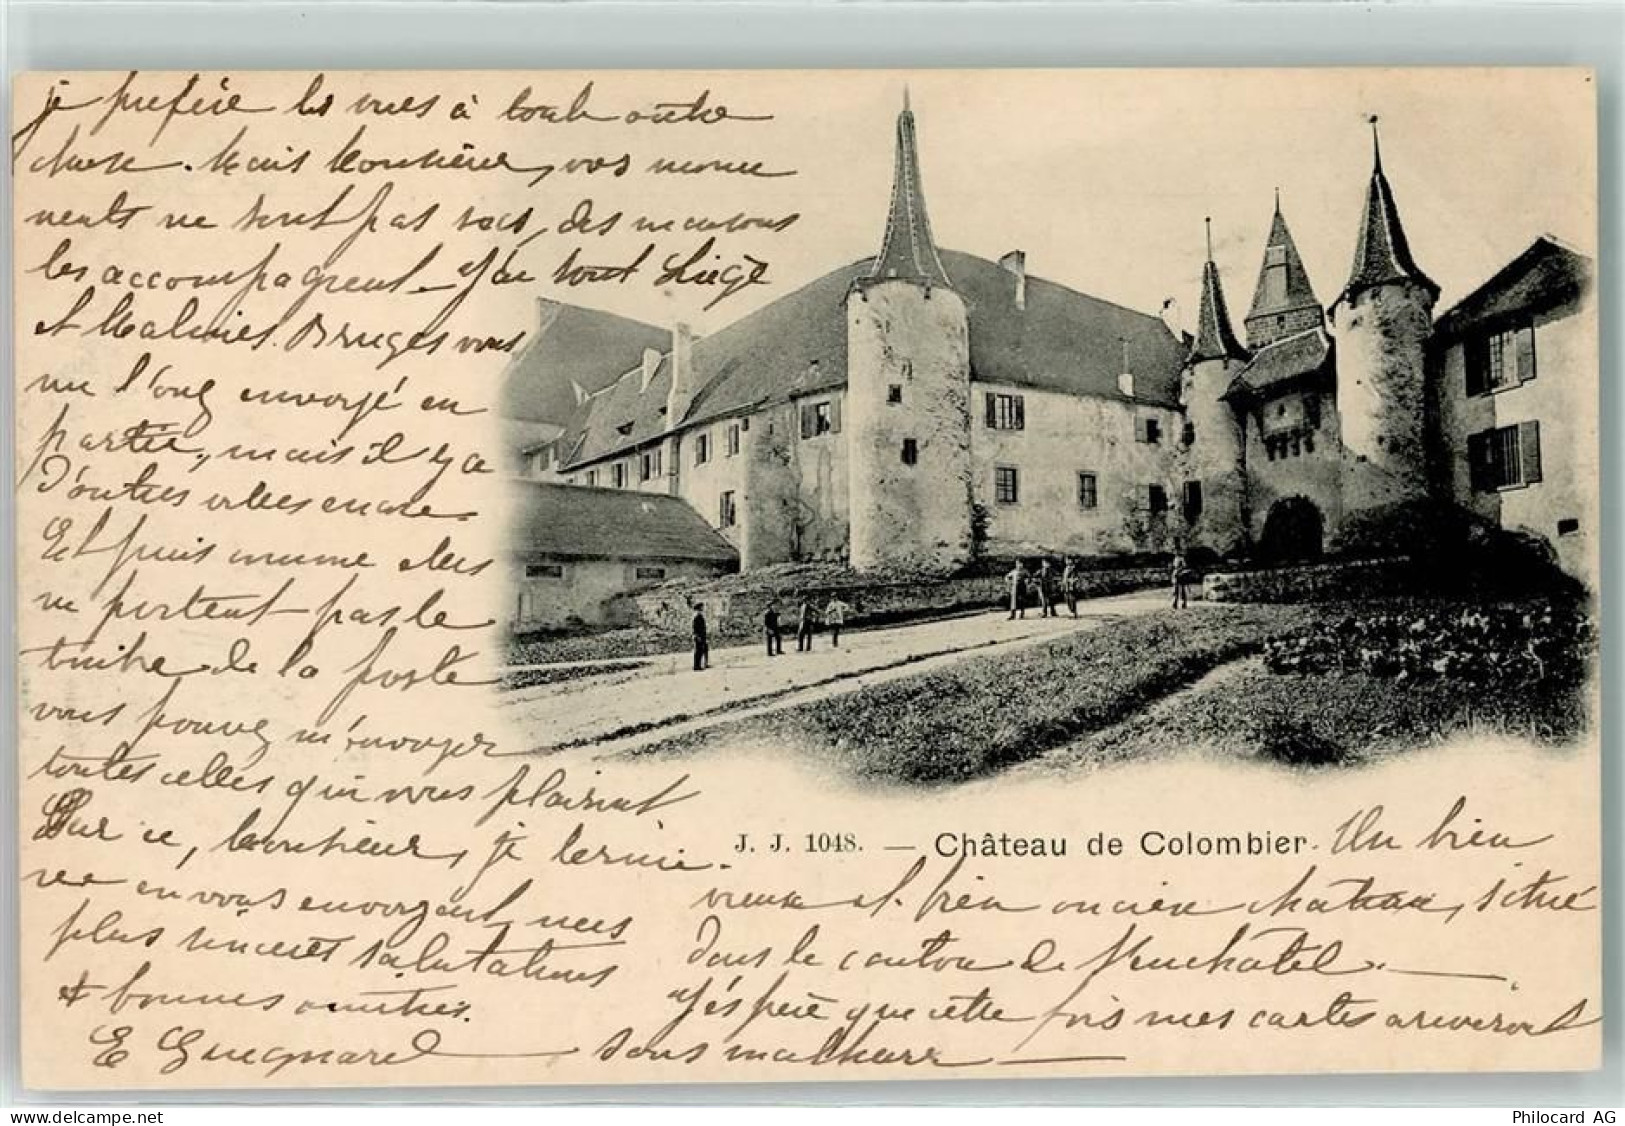 je prefère les vues à toute autre
chose. Mais Monsieur, vos monu
ments ne sont pas secs, des maisons
les accompagnent. J'ai tout Liège
et Malines. Bruges vous
me l'avez envoyé en
partie, mais il y a
d'autres villes encore.
Et puis comme elles
ne portent pas le
timbre de la poste
vous pouvez m'envoyer
toutes celles qui vous plairont
Sur ce, Monsieur, je termi-
ne en vous envoyant mes
plus sincères salutations
et bonnes amitiés.
E Guegnard
J. J. 1048. — Château de Colombier. Un bien
vieux et bien ancien chateau, situé
dans le canton de Neuchâtel.
J'éspère que cette fois mes cartes ariveront
sans malheur
delcampe.net
Philocard AG